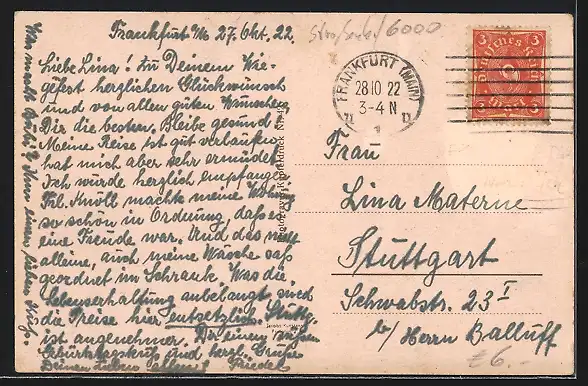 Frankfurt M. 27. Okt. 22.
Liebe Lina! Zu Deinem Wie-
gefest herzlichen Glückwunsch
und von allen guten Wünschen
Dir die besten. Bleibe gesund!
Meine Reise ist gut verlaufen
hat mich aber sehr ermüdet.
Ich wurde herzlich empfangen
Frl. Knoll machte meine Wohnung
so schön in Ordnung, daß es
eine Freude war. Und das nicht
alleine, auch meine Wäsche saß
geordnet im Schrank. Was die
Lebenserhaltung anbelangt sind
die Preise hier entsetzlich. Stuttg.
ist angenehmer. Dir einen süßen
Geburtstagskuß und herzl. Grüße
Deinen Lieben allen! Friedel
6000
FRANKFURT (MAIN)
28 10 22
3-4 N
1
3 Deutsches Reich 3
3 Mark 3
Frau
Lina Materne
Stuttgart
Schwabstr. 23 I
b/ Herrn Balluff
£6.-